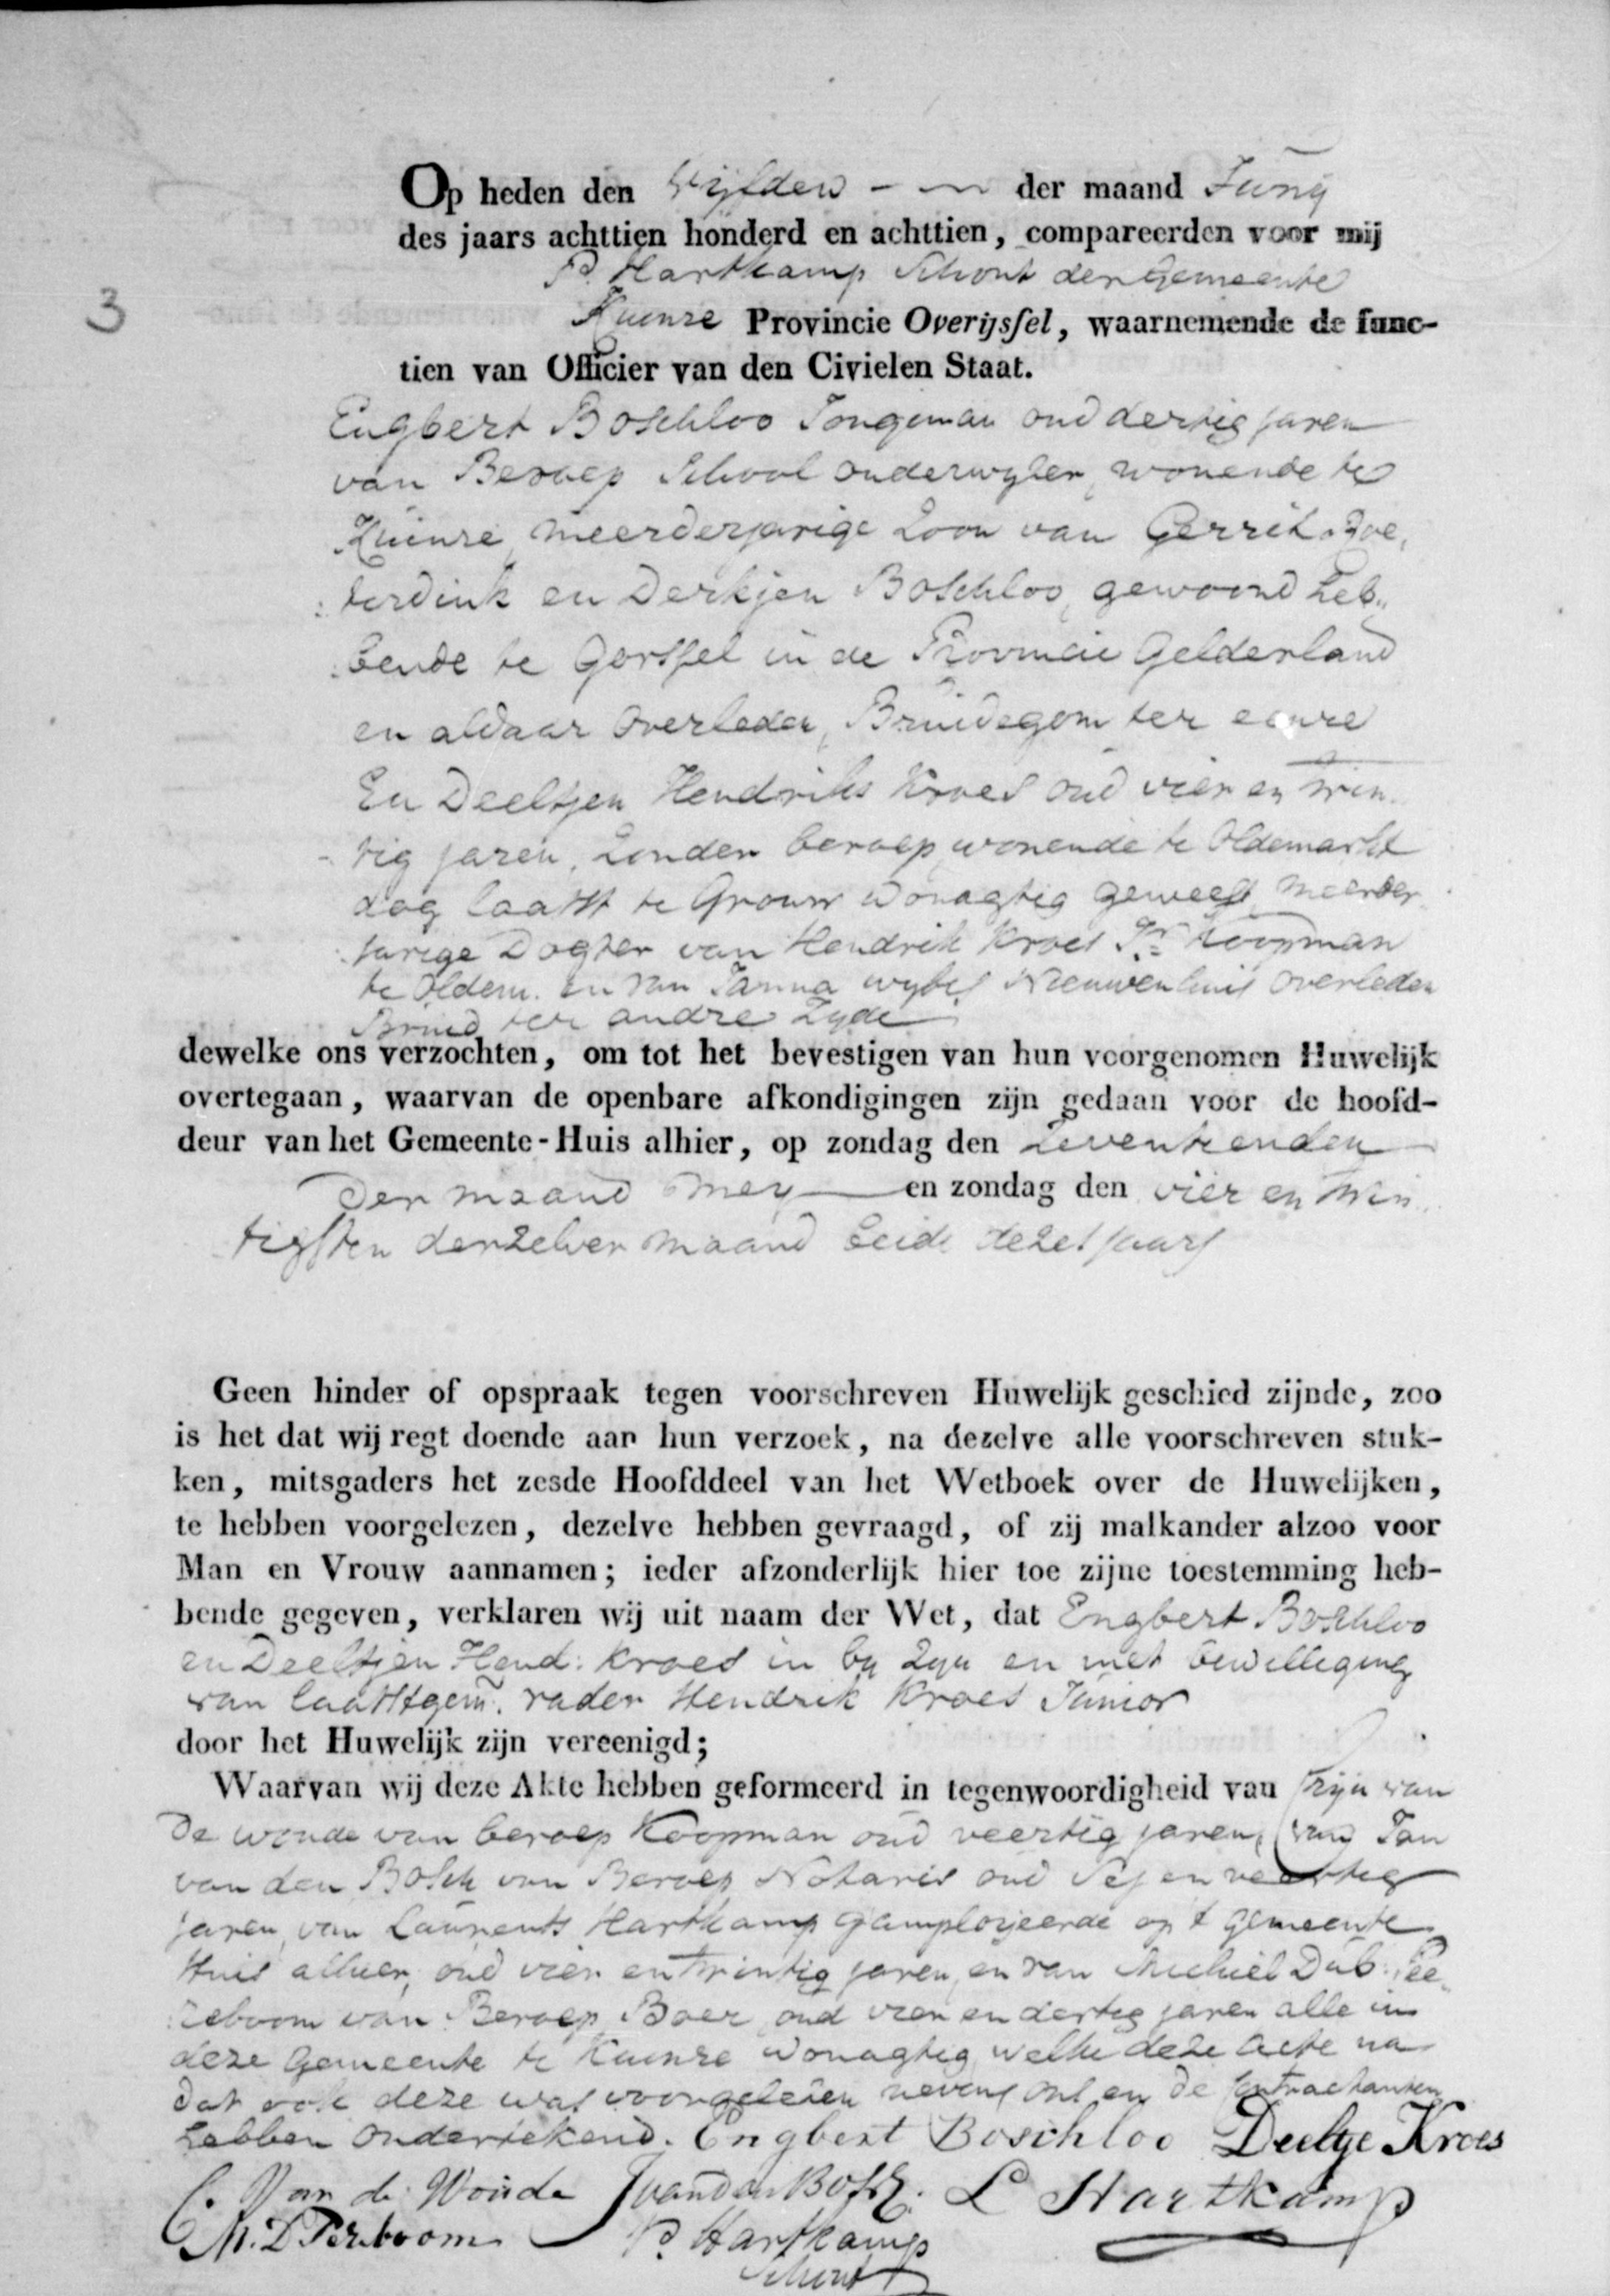 Op heden den vyfden der maand Juny
des jaars achttien honderd en achttien, compareerden voor mij
P. Hartkamp Schout der Gemeente
3
Kuinre Provincie Overijssel, waarnemende de func-
tien van Officier van den Civielen Staat.
Engbert Boschloo Jongman oud dertig jaren
van Beroep School onderwyser, wonende te
Kuinre, meerderjarige Zoon van Gerrit
en Derkjen Boschloo, gewoond heb„
bende te Gorssel in de Provincie Gelderland
en aldaar overleden, Bruidegom ter eenre
En Deeltjen Hendriks Kroes oud vier en twin-
-tig jaren, zonder beroep, wonende te Oldemarkt
dog laatst te Grouw wonagtig geweest, meerder
jarige Dogter van Hendrik Kroes Jr. Koopman
te Oldem. en van Janna wybes Nieuwenhuis overleden
Bruid ter andre Zyde
dewelke ons verzochten, om tot het bevestigen van hun voorgenomen Huwelijk
overtegaan, waarvan de openbare afkondigingen zijn gedaan voor de hoofd-
deur van het Gemeente-Huis alhier, op zondag den zeventienden
der maand Mey en zondag den vier en twin
tigsten derzelver maand beide dezes jaars
Geen hinder of opspraak tegen voorschreven Huwelijk geschied zijnde, zoo
is het dat wij regt doende aan hun verzoek, na dezelve alle voorschreven stuk-
ken, mitsgaders het zesde Hoofddeel van het Wetboek over de Huwelijken,
te hebben voorgelezen, dezelve hebben gevraagd, of zij malkander alzoo voor
Man en Vrouw aannamen; ieder afzonderlijk hier toe zijne toestemming heb-
bende gegeven, verklaren wij uit naam der Wet, dat Engbert Boschloo
en Deeltjen Hend: Kroes in by zyn en met bewilliging
van laatstgem. vader Hendrik Kroes Junior
door het Huwelijk zijn vereenigd;
Waarvan wij deze Akte hebben geformeerd in tegenwoordigheid van van
De Woude van beroep Koopman oud veertig jaren, van Jan
van den Bosch van Beroep Notaris oud en veertig
jaren, van Laurents Hartkamp op t Gemeente
Huis alhier, oud vier en twintig jaren, en van Michiel Pee„
reboom van Beroep Boer, oud vier en dertig jaren alle in
deze Gemeente te Kuinre wonagtig, welke deze acte na
dat ook deze was voorgelesen nevens ons en de Contractanten
hebben ondertekend. Engbert Boschloo Deeltje Kroes
C. Van de Woude J van den Bosch. L Hartkamp
M. D Pereboom P. Hartkamp
Schout